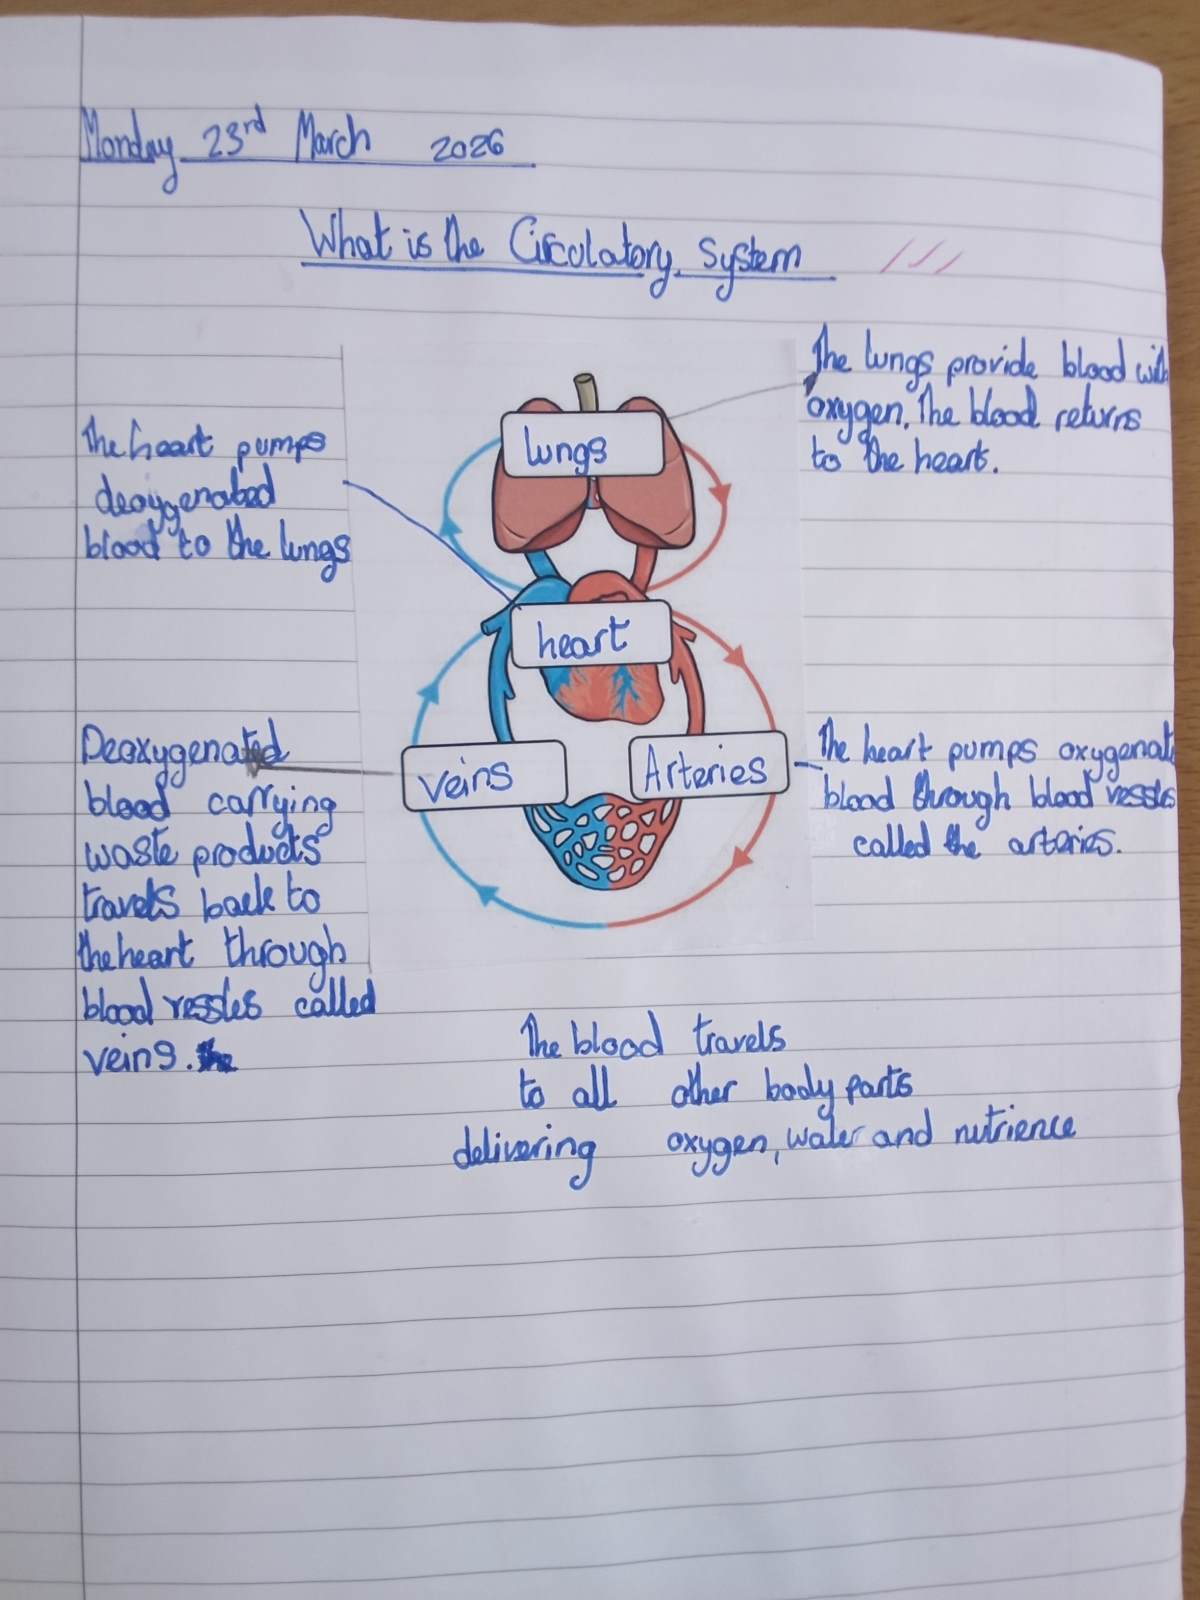 Monday 23rd March 2026
What is the Circulatory System
The lungs provide blood with
oxygen. The blood returns
to the heart.
lungs
The heart pumps
deoygenated
blood to the lungs
heart
Deoxygenated
blood carrying
waste products
travels back to
the heart through
blood vessles called
veins. the
veins
Arteries
The heart pumps oxygenat
blood through blood vessles
called the arteries.
The blood travels
to all other body parts
delivering oxygen, water and nutrience